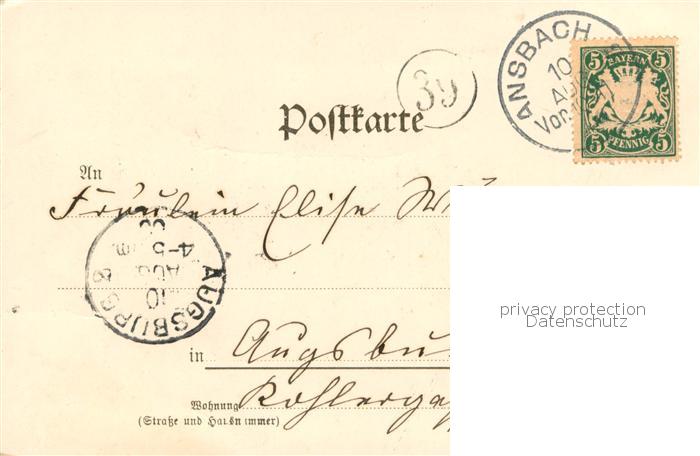 ANSBACH
10
AU
Vor
5 5
BAYERN
PFENNIG
5 5
39
Postkarte
An
Fräulein Elise
AUGSBURG
10
AUG
4-5
00
in Augsbu
Wohnung
(Straße und Hausnummer)
Kohlerga
privacy protection
Datenschutz